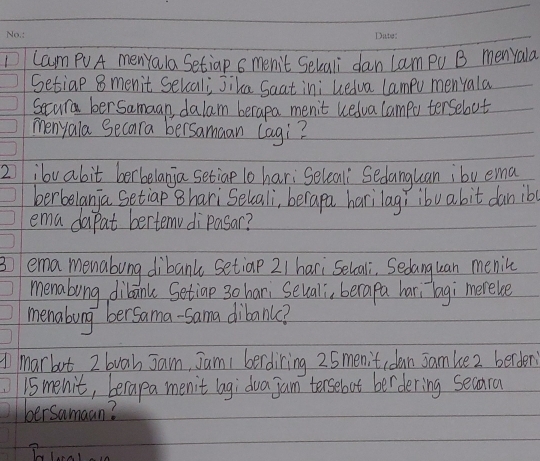 No.: Date:
1 Lampu A menyala Setiap 6 menit Sekali dan Lampu B menyala
Setiap 8 menit Sekali, Jika Saat ini kedua Lampu menyala
Secara bersamaan, dalam berapa menit kedua Lampu tersebut
menyala Secara bersamaan Lagi?
2 ibu abit berbelanja setiap 10 hari Sekali Sedangkan ibu ema
berbelanja Setiap 8 hari Sekali, berapa hari lagi ibu abit dan ibu
ema dapat bertemu di Pasar?
3 ema menabung dibank Setiap 21 hari Sekali. Sedangkan menik
menabung dibank Setiap 30 hari Sekali, berapa hari lagi mereke
menabung bersama-sama dibank?
4 marbot 2 buah Jam, Jam 1 berdiring 25 menit, dan Jam ke 2 berderi
15 menit, berapa menit lagi dua jam tersebut berdering Secara
bersamaan?